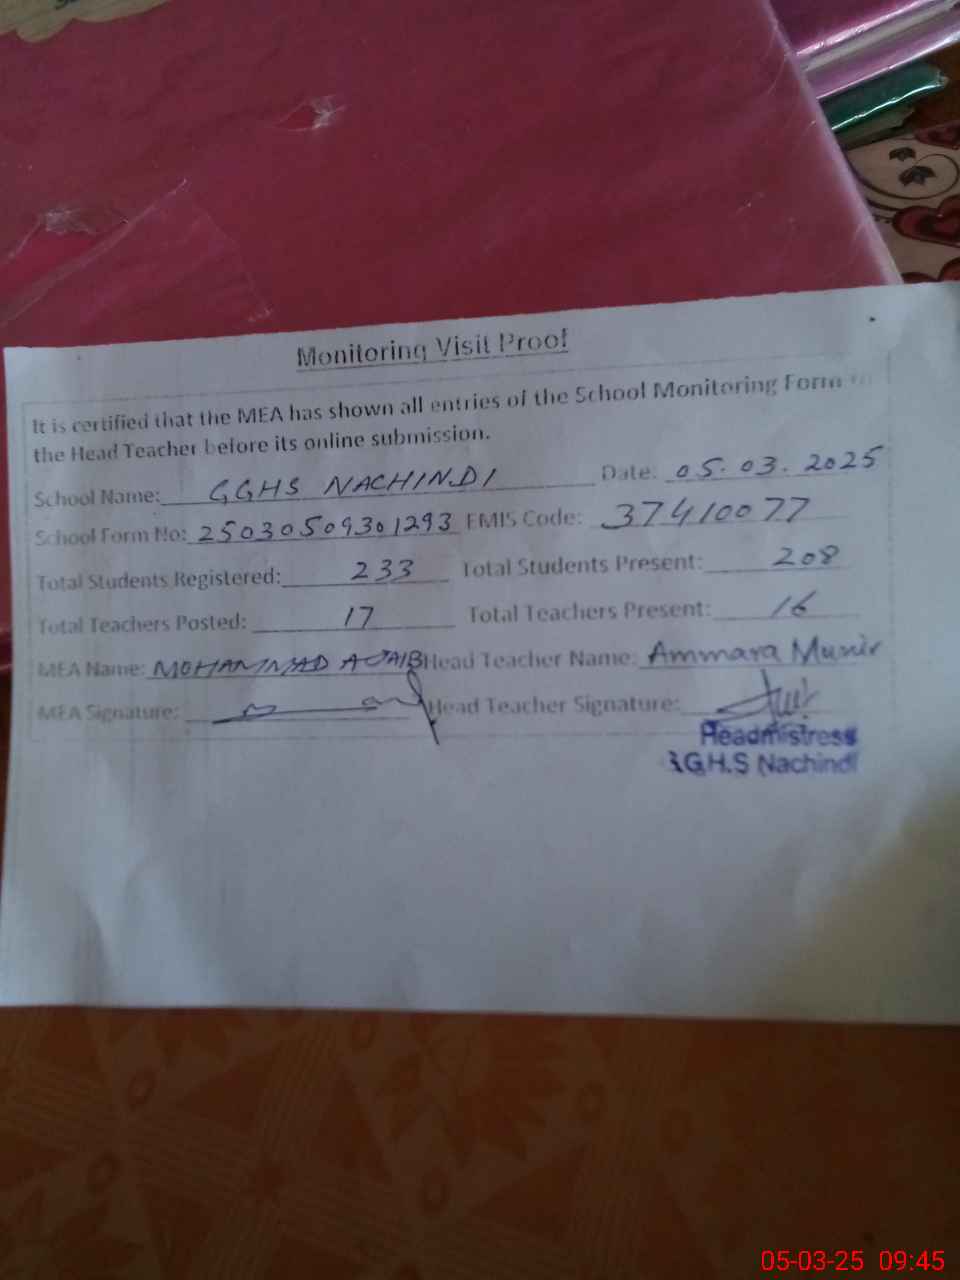 Monitoring Visit Proof
It is certified that the MEA has shown all entries of the School Monitoring Form to
the Head Teacher before its online submission.
School Name: GGHS NACHINDI Date. 05.03.2025
School Form No: 25030509301293 EMIS Code: 37410077
Total Students Registered: 233 Total Students Present: 208
Total Teachers Posted: 17 Total Teachers Present: 16
MEA Name: MOHAMMAD AJAIB Head Teacher Name: Ammara Munir
MEA Signature: Head Teacher Signature:
Headmistress
G.H.S Nachindi
05-03-25 09:45